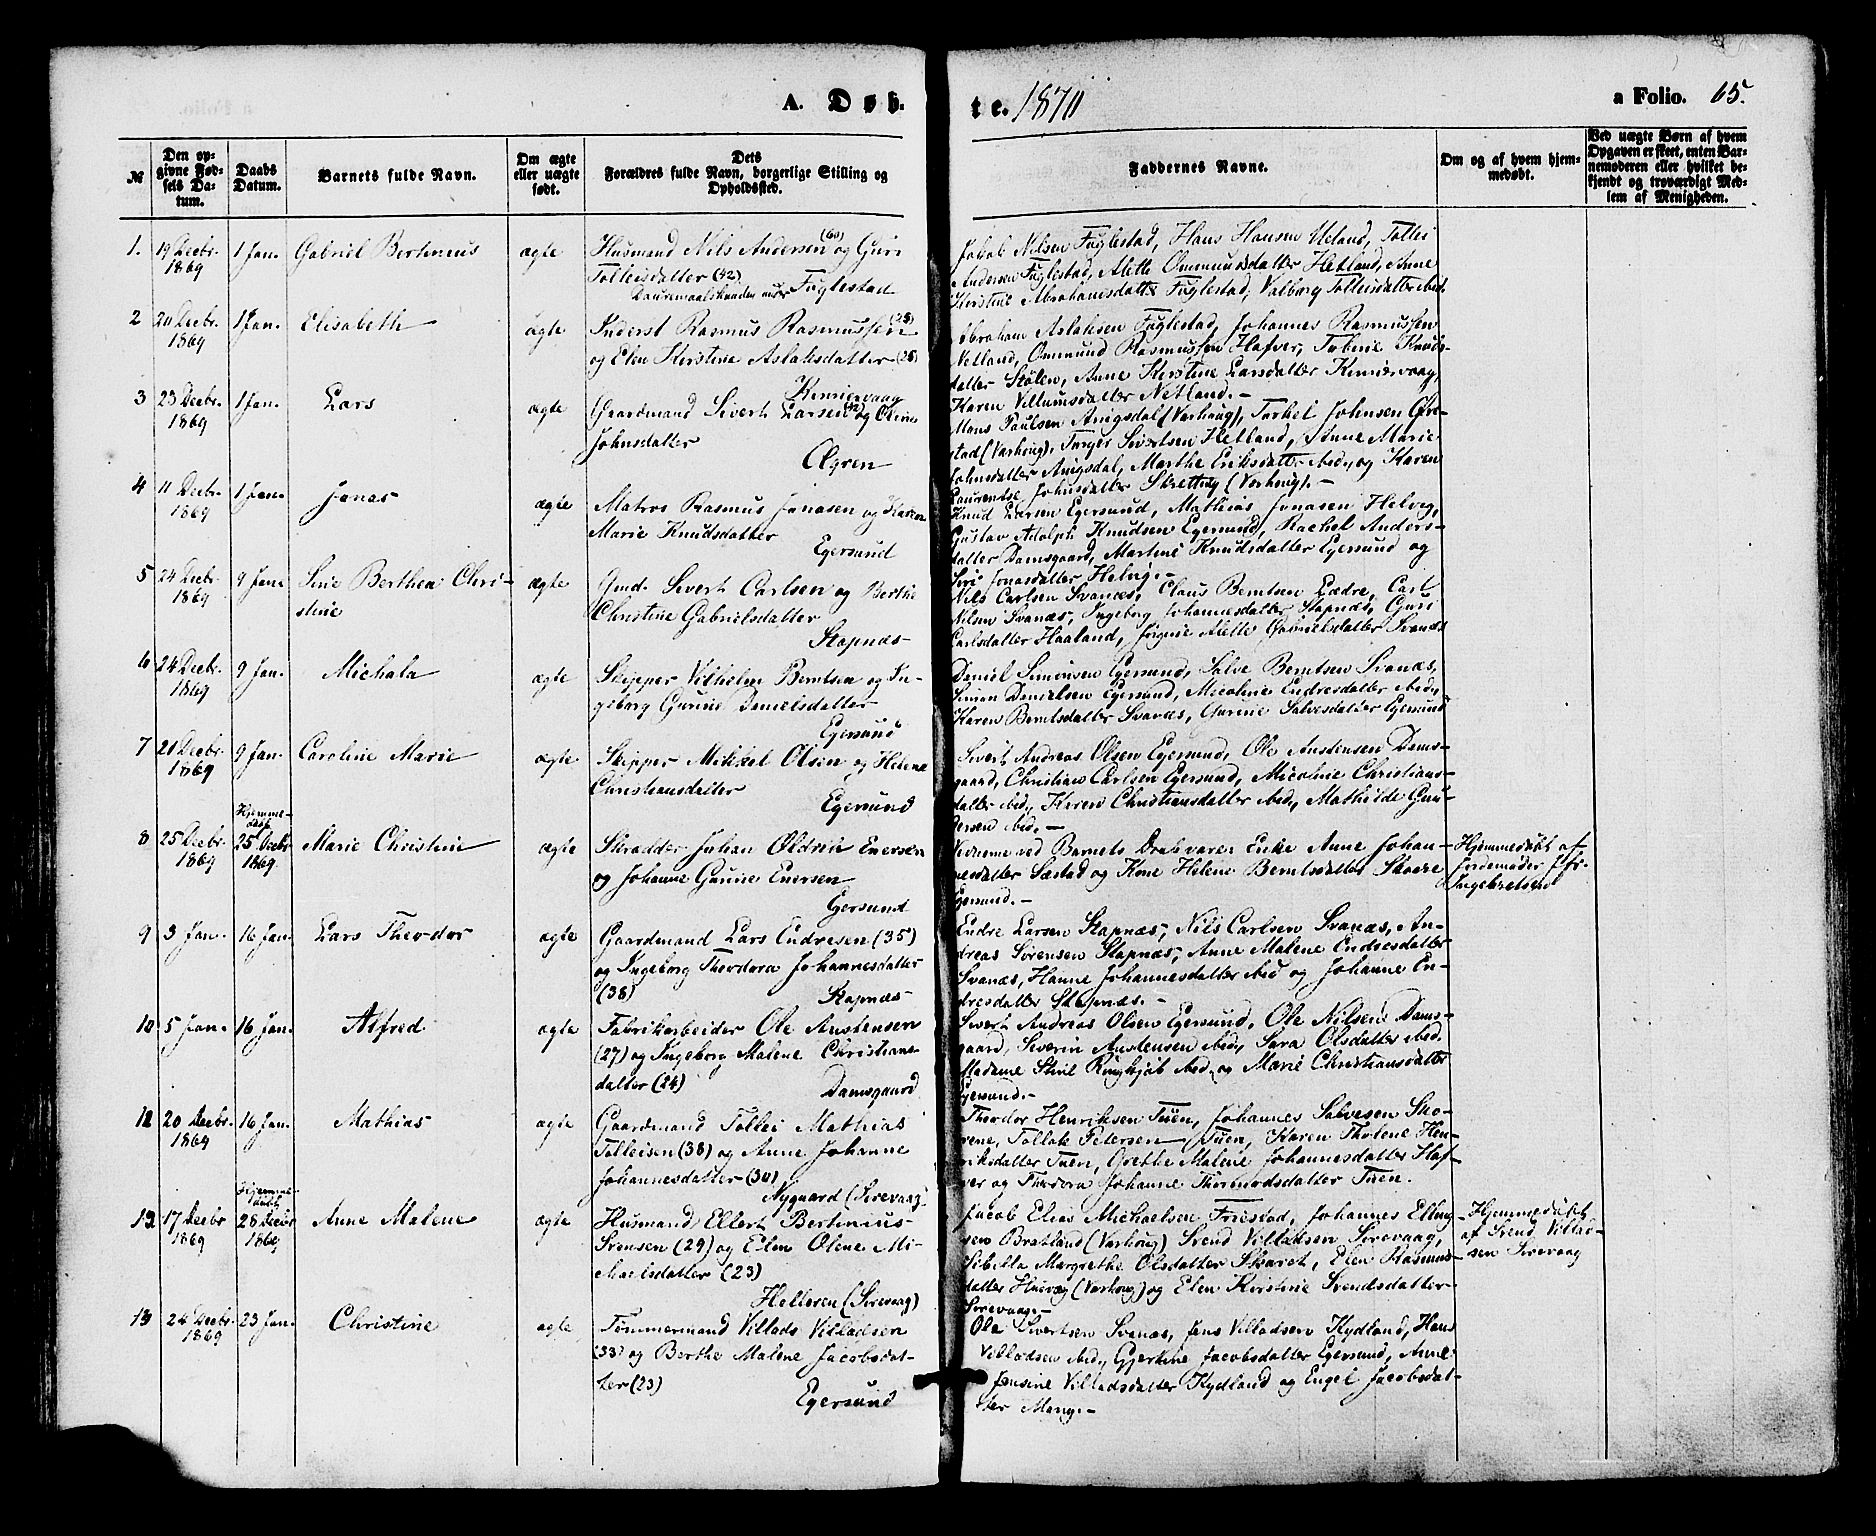 A. Døb-
te. 1870
a Folio. 65.
№
Den opgivne Fødsels Datum.
Daabs Datum.
Barnets fulde Navn.
Om ægte eller uægte født.
Dets Forældres fulde Navn, borgerlige Stilling og Opholdssted.
Faddernes Navne.
Om og af hvem hjemmedøbt.
Ved uægte Børn af hvem Opgaven er skeet, enten Barnemoderen eller hvilket bekjendt og troværdigt Medlem af Menigheden.
1. 19 Decbr. 1869 1 Jan. Gabriel Bertinius ægte
Husmand Nils Andersen (60) og Guri
Tolleisdatter (42)
Fuglestad
Jakob Nilsen Fuglestad, Hans Hansen Ueland, Tollei
Andersen Fuglestad, Alette Ommundsdatter Hetland, Anne
Kirstine Abrahamsdatter Fuglestad, Valborg Tolleisdatter ibid.
2 20 Decbr. 1869 1 Jan. Elisabeth ægte
Inderst Rasmus Rasmussen (28)
og Elen Kirstine Aslaksdatter (28)
Kinnervaag
Abraham Aslaksen Fuglestad, Johannes Rasmussen
Netland, Ommund Rasmussen Hafver, Tobine Knuds-
datter Stölen, Anne Kirstine Larsdatter Kinnervaag,
Karen Villumsdatter Netland.-
3 23 Decbr. 1869 1 Jan. Lars ægte
Gaardmand Sivert Larsen (42) og Oline
Johnsdatter
Ogren
Mons Paulsen Anigsdal (Varhoug), Torkel Johnsen Ore-
stad (Varhoug), Torger Sivertsen Hetland, Anne Marie
Johnsdatter Anigsdal, Marthe Eriksdatter ibid, og Karen
Laurentse Johnsdatter Skretting (Varhoug).-
4 11 Decbr. 1869 1 Jan. Jonas ægte
Matros Rasmus Jonasen og Karen
Marie Knudsdatter
Egersund
Knud Larsen Egersund, Mathias Jonasen Helvig,
Gustav Adolph Knudsen Egersund, Rachel Anders-
datter Damsgaard, Martine Knudsdatter Egersund og
Siri Jonasdatter Helvig.-
5 24 Decbr. 1869 9 Jan. Sine Berthea Chri-
stine ægte
Gmd. Sivert Carlsen og Berthe
Christine Gabrielsdatter
Stapnæs
Nils Carlsen Svanæs, Claus Berntsen Eedre, Carl
Nilsen Svanæs, Ingeborg Johannesdatter Stapnæs, Guri
Carlsdatter Haaland, Jørgine Alette Gabrielsdatter Svanæs
6 24 Decbr. 1869 9 Jan. Michala ægte
Skipper Vilhelm Berntsen og In-
geborg Gurine Danielsdatter
Egersund
Daniel Simonsen Egersund, Salve Berntsen Svanæs,
Simon Danielsen Egersund, Micoline Endresdatter ibid,
Karen Berntsdatter Svanæs, Gurine Salvesdatter Egersund
7 21 Decbr. 1869 9 Jan. Caroline Marie ægte
Skipper Mikkel Olsen og Helene
Christiansdatter
Egersund
Sivert Andreas Olsen Egersund, Ole Austensen Dams-
gaard, Christian Carlsen Egersund, Micoline Christians-
datter ibid, Karen Christiansdatter ibid, Mathilde Gun-
dersen ibid.-
8 25 Decbr. 1869 Hjemmedøbt 25 Decbr. 1869. Marie Christine ægte
Skrædder Johan Oldrin Enersen
og Johanne Gurine Enersen
Egersund
Vidnerne ved Barnets Daab varen Enke Anne Johan-
nesdatter Sæstad og Kone Helene Berntsdatter Skaare
Egersund.-
Hjemmedøbt af
Jordemoder Jfr.
Ingebretsen
9 3 Jan. 16 Jan. Lars Theodor ægte
Gaardmand Lars Endresen (35)
og Ingeborg Theodora Johannesdatter
(38) Stapnæs
Endre Larsen Stapnæs, Nils Carlsen Svanæs, An-
dreas Sörensen Stapnæs, Anne Malene Endresdatter
Svanæs, Hanne Johannesdatter ibid og Johanne En-
dresdatter Stapnæs.-
10 5 Jan. 16 Jan. Alfred ægte
Fabrikarbeider Ole Austensen
(27) og Ingeborg Malene Christians-
datter (24)
Damsgaard
Sivert Andreas Olsen Egersund, Ole Nilsen Dams-
gaard, Severin Austensen ibid, Sara Olsdatter ibid.
Madame Sivil Ringhjøb ibid, og Marie Christiansdatter
Egersund.-
11 20 Decbr. 1869 16 Jan. Mathias ægte
Gaardmand Tollei Mathias
Tolleisen (38) og Anne Johanne
Johannesdatter (30)
Nygaard (Sirevaag)
Theodor Henriksen Tuen, Johannes Salvesen Sko-
rene, Tollak Petersen Tuen, Karen Tholene Hen-
riksdatter Tuen, Grethe Malene Johannesdatter Haf-
ver og Theodora Johanne Thormodsdatter Tuen.
12 17 Decbr 1869 Hjemmedøbt 28 Decbr 1869 Anne Malene ægte
Husmand Ellert Bertinius
Svensen (29) og Elen Olene Mi-
chaelsdatter (23)
Helleren (Sirevaag)
Jacob Elias Michaelsen Friestad, Johannes Elling-
sen Bratland (Varhoug) Svend Villadsen Sirevaag,
Sibilla Margrethe Olsdatter Skaret, Elen Rasmus-
datter (Varhoug) og Elen Kirstine Svendsdatter
Sirevaag.-
Hjemmedøbt
af Svend Villad-
sen Sirevaag
13 24 Decbr. 1869 23 Jan. Christine ægte
Tømmermand Villads Villadsen
(33) og Berthe Malene Jacobsdat-
ter (23)
Egersund
Ole Sivertsen Svanæs, Jens Villadsen Kydland, Hans
Villadsen ibid, Gjertine Jacobsdatter Egersund, Anne
Jensine Villadsdatter Kydland og Engel Jacobsdat-
ter Mong.-